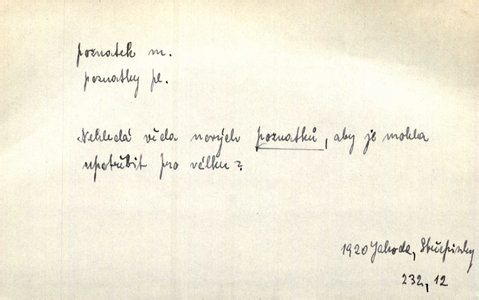 poznatek m.
poznatky pl.
Nehledá věda nových poznatků, aby je mohla
upotřebit pro válku?
1920 Jahoda, Střepinky
232, 12